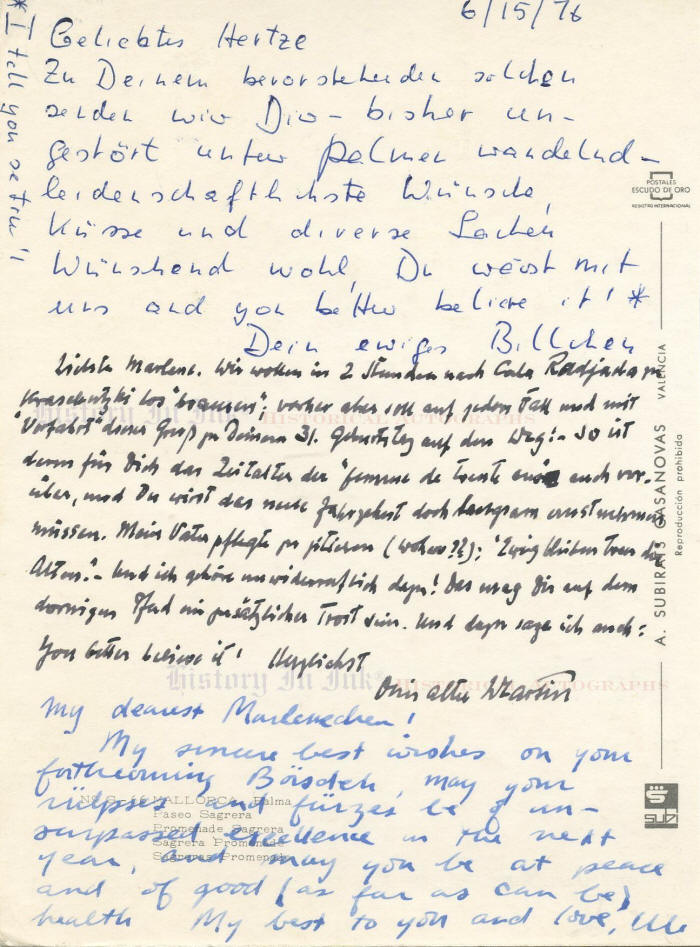 6/15/76
Geliebtes Hertze
Zu Deinem bevorstehenden solchen
senden wir Dir - bisher un-
gestört unter Palmen wandelnd -
leidenschaftlichste Wünsche,
Küsse und diverse Sachen
Wünschend wohl, Du wärst mit
uns and you better believe it! *
Dein ewiges Billchen
* I tell you se tru'i
Liebste Marlene. Wir wollen in 2 Stunden nach Cala Radjada zu
Kraschutzki los "brausen", vorher aber soll auf jeden Fall und mit
"Vorfahrt" dieser Gruß zu Deinem 31. Geburtstag auf den Weg! - So ist
denn für Dich das Zeitalter der "femme de trente ans" auch vor-
über, und Du wirst das neue Jahrzehnt doch langsam ernstnehmen
müssen. Mein Vater pflegte zu zitieren (woher??): "Ewig bleiben treu die
Alten." - Und ich gehöre unwiderruflich dazu! Das mag Dir auf dem
dornigen Pfad ein zusätzlicher Trost sein. Und dazu sage ich auch:
You better believe it! Herzlichst
Dein alter Martin
My dearest Marlenechen!
My sincere best wishes on your
forthcoming Böisdeh, may your
rülpses and fürzes be of un-
surpassed excellence in the next
year, and may you be at peace
and of good (as far as can be)
health My best to you and love,
MALLORCA, Palma
Paseo Sagrera
Promenade Sagrera
Sagrera Promenade
Sagreras Promenade
POSTALES
ESCUDO DE ORO
REGISTRO INTERNACIONAL
A. SUBIRATS CASANOVAS VALENCIA
Reproducción prohibida
subi
History In Ink HISTORICAL AUTOGRAPHS
History In Ink HISTORICAL AUTOGRAPHS